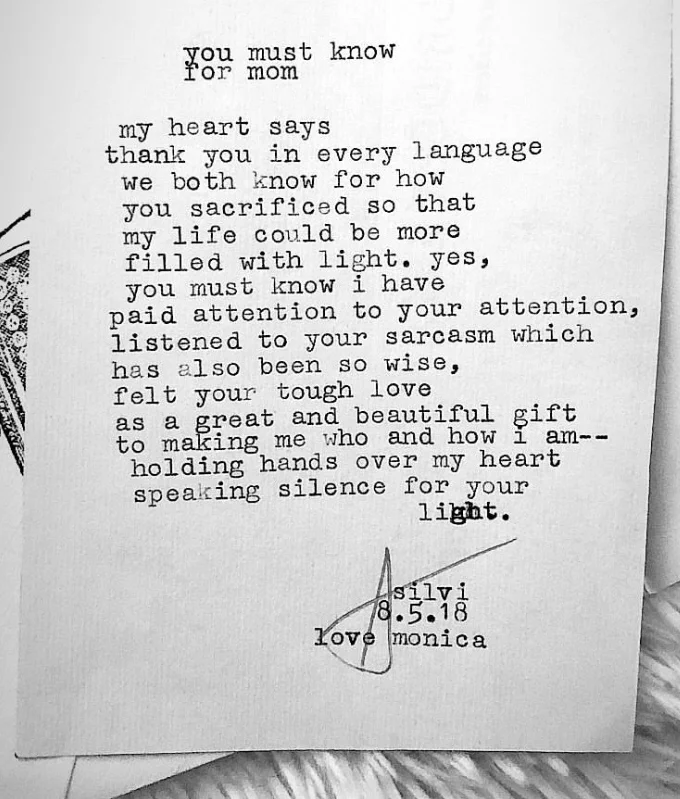 you must know
for mom
my heart says
thank you in every language
we both know for how
you sacrificed so that
my life could be more
filled with light. yes,
you must know i have
paid attention to your attention,
listened to your sarcasm which
has also been so wise,
felt your tough love
as a great and beautiful gift
to making me who and how i am--
holding hands over my heart
speaking silence for your
light.
silvi
8.5.18
love monica